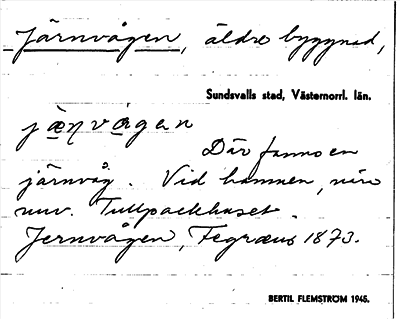 Järnvågen, äldre byggnad,
Sundsvalls stad, Västernorrl. län.
jæ̱ŋvå̱gen
Där fanns en
järnvåg. Vid hamnen, nära
nuv. Tullpackhuset.
Jernvågen, Tegræus 1873.
BERTIL FLEMSTRÖM 1945.